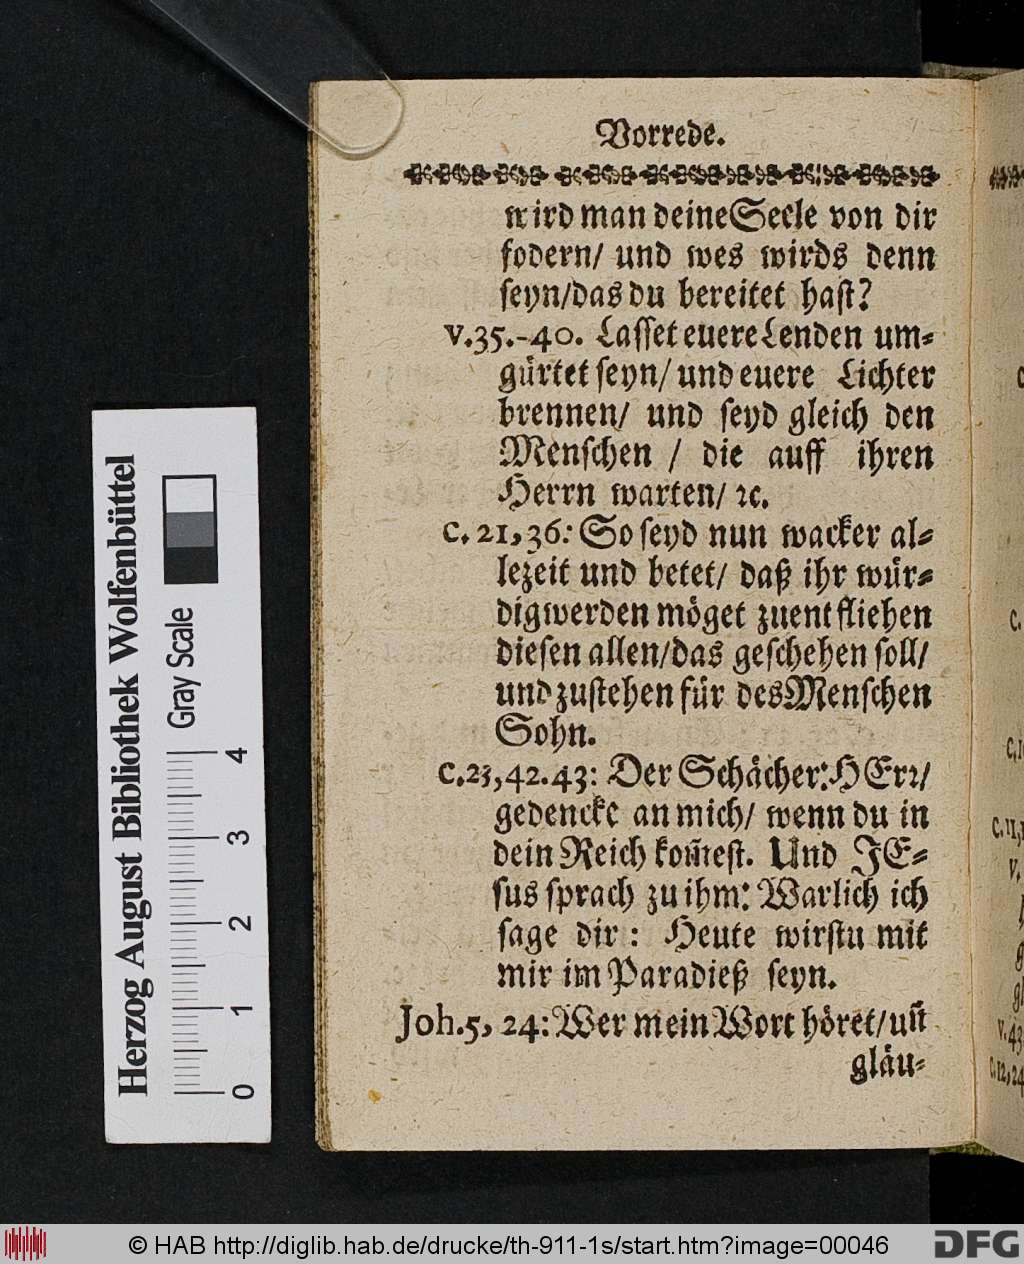 Vorrede.
wird man deine Seele von dir
fodern/ und wes wirds denn
seyn/das du bereitet hast?
v.35.-40. Lasset euere Lenden um⸗
gürtet seyn/ und euere Lichter
brennen/ und seyd gleich den
Menschen / die auff ihren
Herrn warten/ ꝛc.
C. 21, 36: So seyd nun wacker al⸗
lezeit und betet/ daß ihr wür⸗
dig werden möget zu entfliehen
diesen allen/das geschehen soll/
und zu stehen für des Menschen
Sohn.
C.23,42.43: Der Schächer: HErꝛ/
gedencke an mich/ wenn du in
dein Reich kom̃est. Und JE⸗
sus sprach zu ihm: Warlich ich
sage dir : Heute wirstu mit
mir im Paradieß seyn.
Joh. 5, 24: Wer mein Wort höret/ uñ
gläu⸗
Herzog August Bibliothek Wolfenbüttel
Gray Scale
0 1 2 3 4
© HAB http://diglib.hab.de/drucke/th-911-1s/start.htm?image=00046
DFG